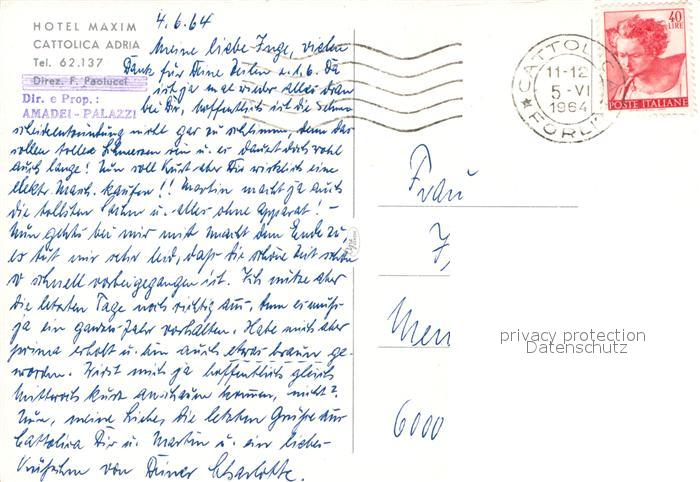 HOTEL MAXIM
CATTOLICA ADRIA
Tel. 62.137
Direz. F. Paolucci
Dir. e Prop.:
AMADEI - PALAZZI
4.6.64
Meine liebe Inge, vielen
Dank für Deine Zeilen v. 1.6. Da
ist ja mal wieder alles dran
bei Dir, hoffentlich ist die Sehnen
scheidenentzündung nicht gar zu schlimm, denn das
sollen tolle Schmerzen sein u. es dauert doch wohl
auch lange! Nun soll Kurt aber Dir wirklich eine
elektr. Masch. kaufen!! Martin macht ja auch
die tollsten u. alles ohne Apparat! -
Nun gehts bei mir mit Macht dem Ende zu
es tut mir sehr leid, daß die schöne Zeit schon
so schnell vorbeigegangen ist. Ich nütze aber
die letzten Tage noch richtig aus, denn es muß
ja ein ganzes Jahr vorhalten. Habe mich aber
prima erholt u. bin auch etwas braun ge-
worden. Wirst mich ja hoffentlich gleich
Mittwoch kurz anschauen kommen, nicht?
Nun, meine Liebe, die letzten Grüße aus
Cattolica Dir u. Martin u. ein liebes
von Deiner Charlotte.
CATTOLICA
11-12
5-VI
1964
FORLI
40
LIRE
POSTE ITALIANE
Frau
J
Men
6000
privacy protection
Datenschutz